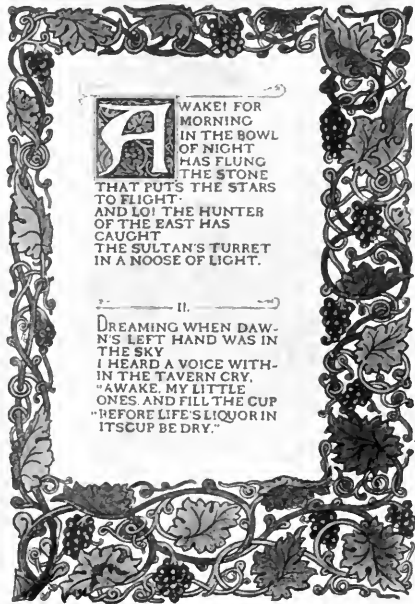 AWAKE! FOR
MORNING
IN THE BOWL
OF NIGHT
HAS FLUNG
THE STONE
THAT PUTS THE STARS
TO FLIGHT·
AND LO! THE HUNTER
OF THE EAST HAS
CAUGHT
THE SULTAN'S TURRET
IN A NOOSE OF LIGHT.
II.
DREAMING WHEN DAW-
N'S LEFT HAND WAS IN
THE SKY
I HEARD A VOICE WITH-
IN THE TAVERN CRY,
"AWAKE, MY LITTLE
ONES, AND FILL THE CUP
"BEFORE LIFE'S LIQUOR IN
ITS CUP BE DRY."